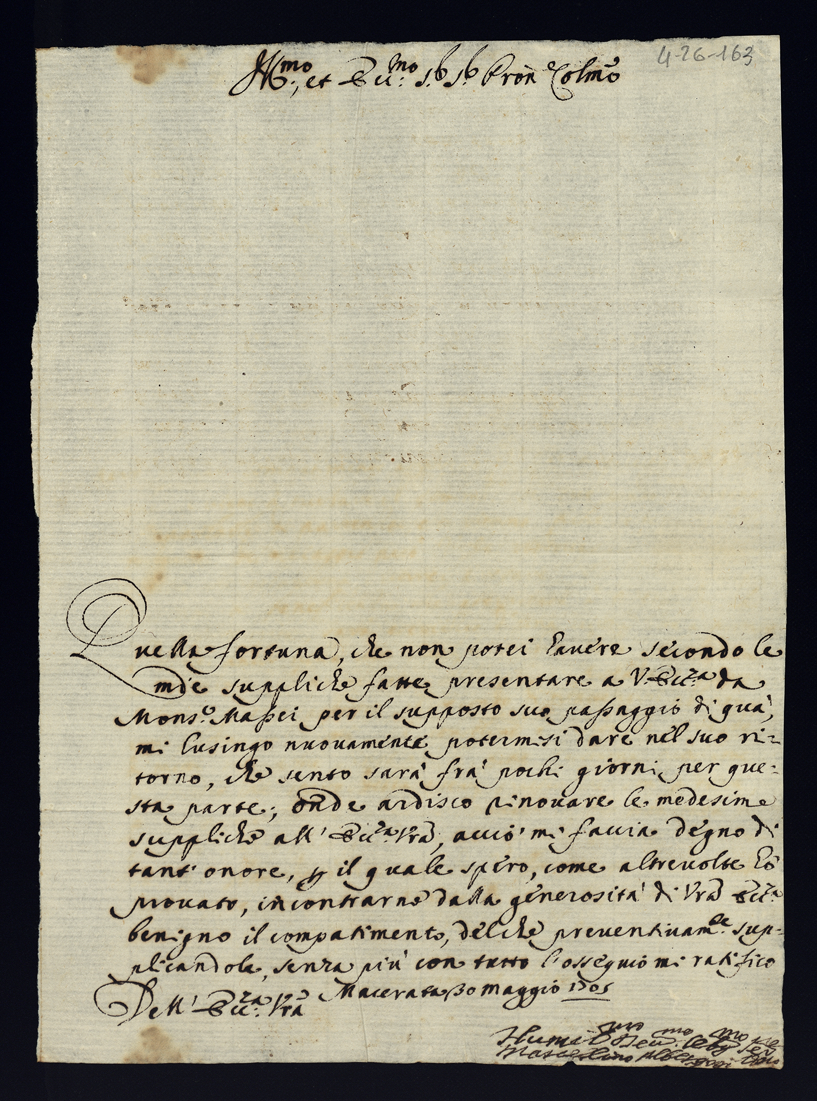 4-26-163
Ill.mo, et Ecc.mo Sig. Sig. Pron e Colmo
Quella fortuna, che non potei havere secondo le
mie suppliche fatte presentare a V. Ecc.za da
Mons.r Massei per il supposto suo passaggio di quà,
mi lusingo nuovamente potermisi dare nel suo ri-
torno, che sento sarà frà pochi giorni per que-
sta parte; onde ardisco rinovare le medesime
suppliche all' Ecc.za Vra, acciò mi faccia degno di
tant' onore, per il quale spero, come altrevolte hò
provato, incontrarne dalla generosità di Vra Ecc.za
benigno il compatimento, delche preventivam.te sup-
plicandola, senza più con tutto l'ossequio mi ratifico
Dell' Ecc.za Vra Macerata 30 maggio 1705
Humil.mo Dev.mo Obg.mo
Marcellino